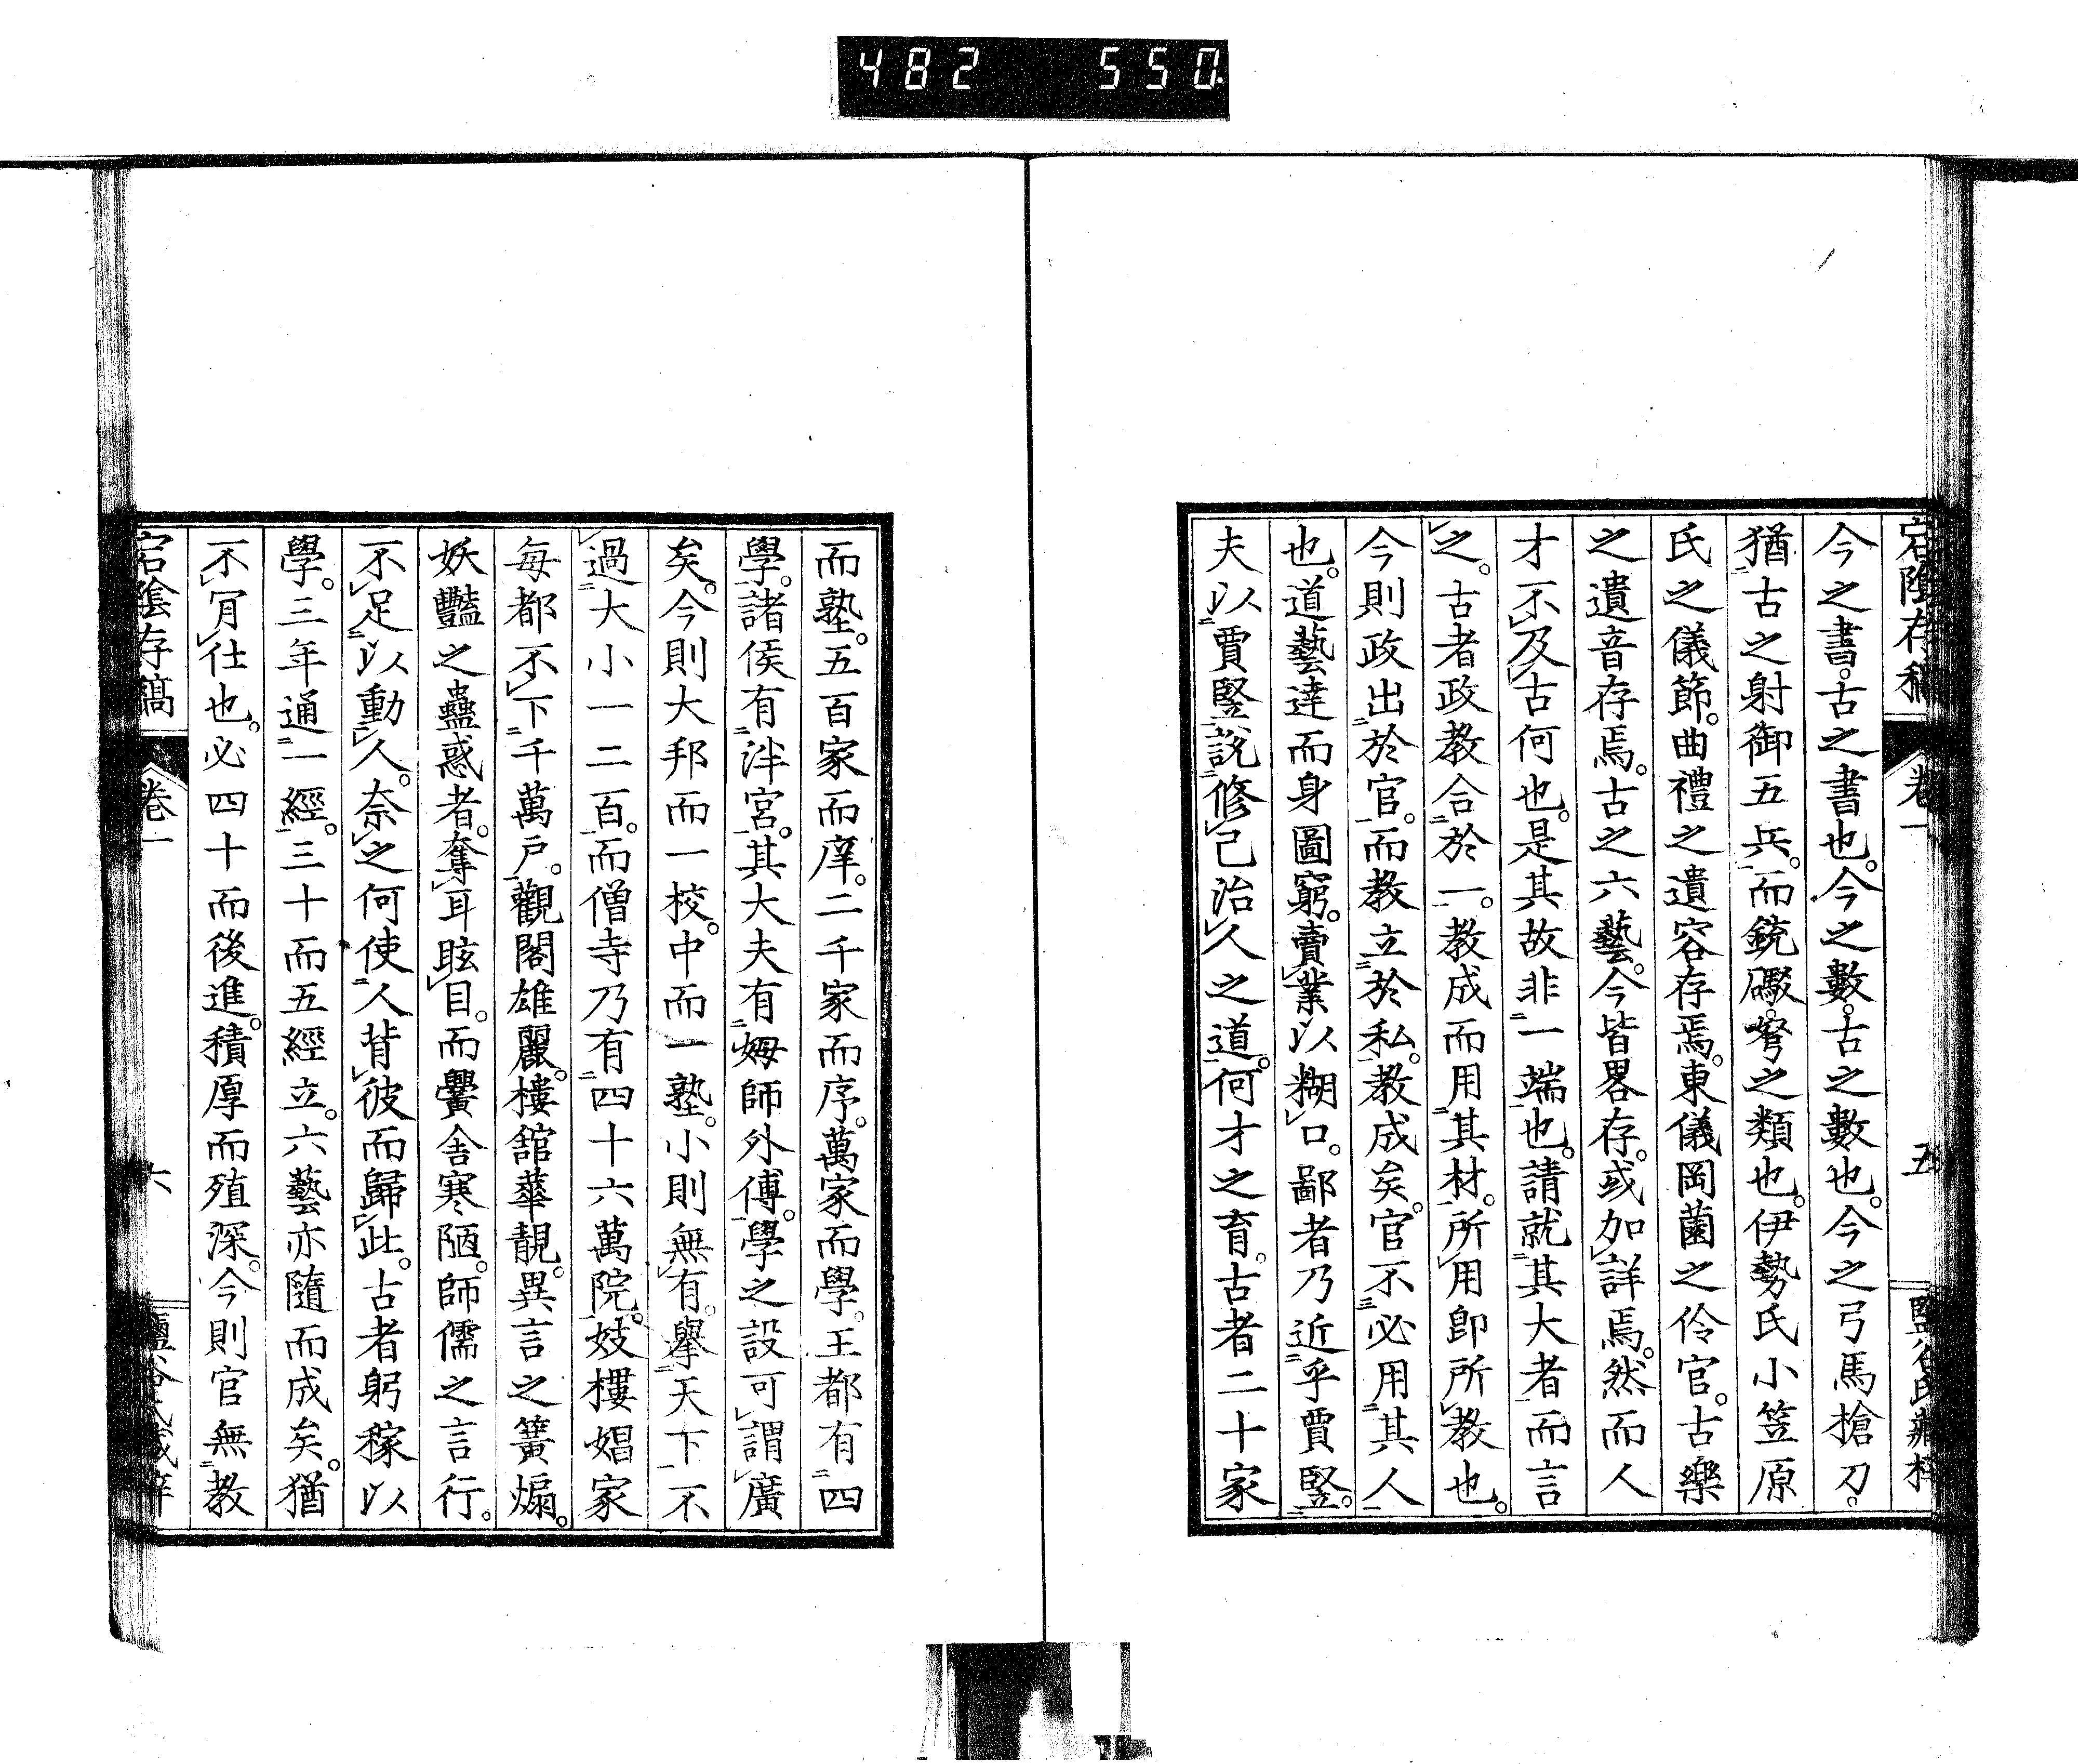 482 550
宕陰存稿 卷一 五 鹽谷氏藏梓
今之書。古之書也。今之數。古之數也。今之弓馬搶刀。
猶古之射御五兵。而銃礮。弩之類也。伊勢氏小笠原
氏之儀節。曲禮之遺容存焉。東儀岡薗之伶官。古樂
之遺音存焉。古之六藝。今皆畧存。或加詳焉。然而人
才不及古何也。是其故非一端也。請就其大者而言
之。古者政教合於一。教成而用其材。所用卽所教也。
今則政出於官。而教立於私。教成矣。官不必用其人
也。道藝達而身圖窮。賣業以糊口。鄙者乃近乎賈豎。
夫以賈豎説修己治人之道。何才之育。古者二十家
而塾。五百家而庠。二千家而序。萬家而學。王都有四
學。諸侯有泮宮。其大夫有姆師外傅。學之設可謂廣
矣。今則大邦而一校。中而一塾。小則無有。擧天下不
過大小一二百。而僧寺乃有四十六萬院。妓樓娼家
每都不下千萬戸。觀閣雄麗。樓舘華靚。異言之簧煽。
妖豔之蠱惑者。奪耳眩目。而黌舍寒陋。師儒之言行。
不足以動人。奈之何使人背彼而歸此。古者躬稼以
學。三年通一經。三十而五經立。六藝亦隨而成矣。猶
不肎仕也。必四十而後進。積厚而殖深。今則官無教
宕陰存稿 卷一 六 鹽谷氏藏梓